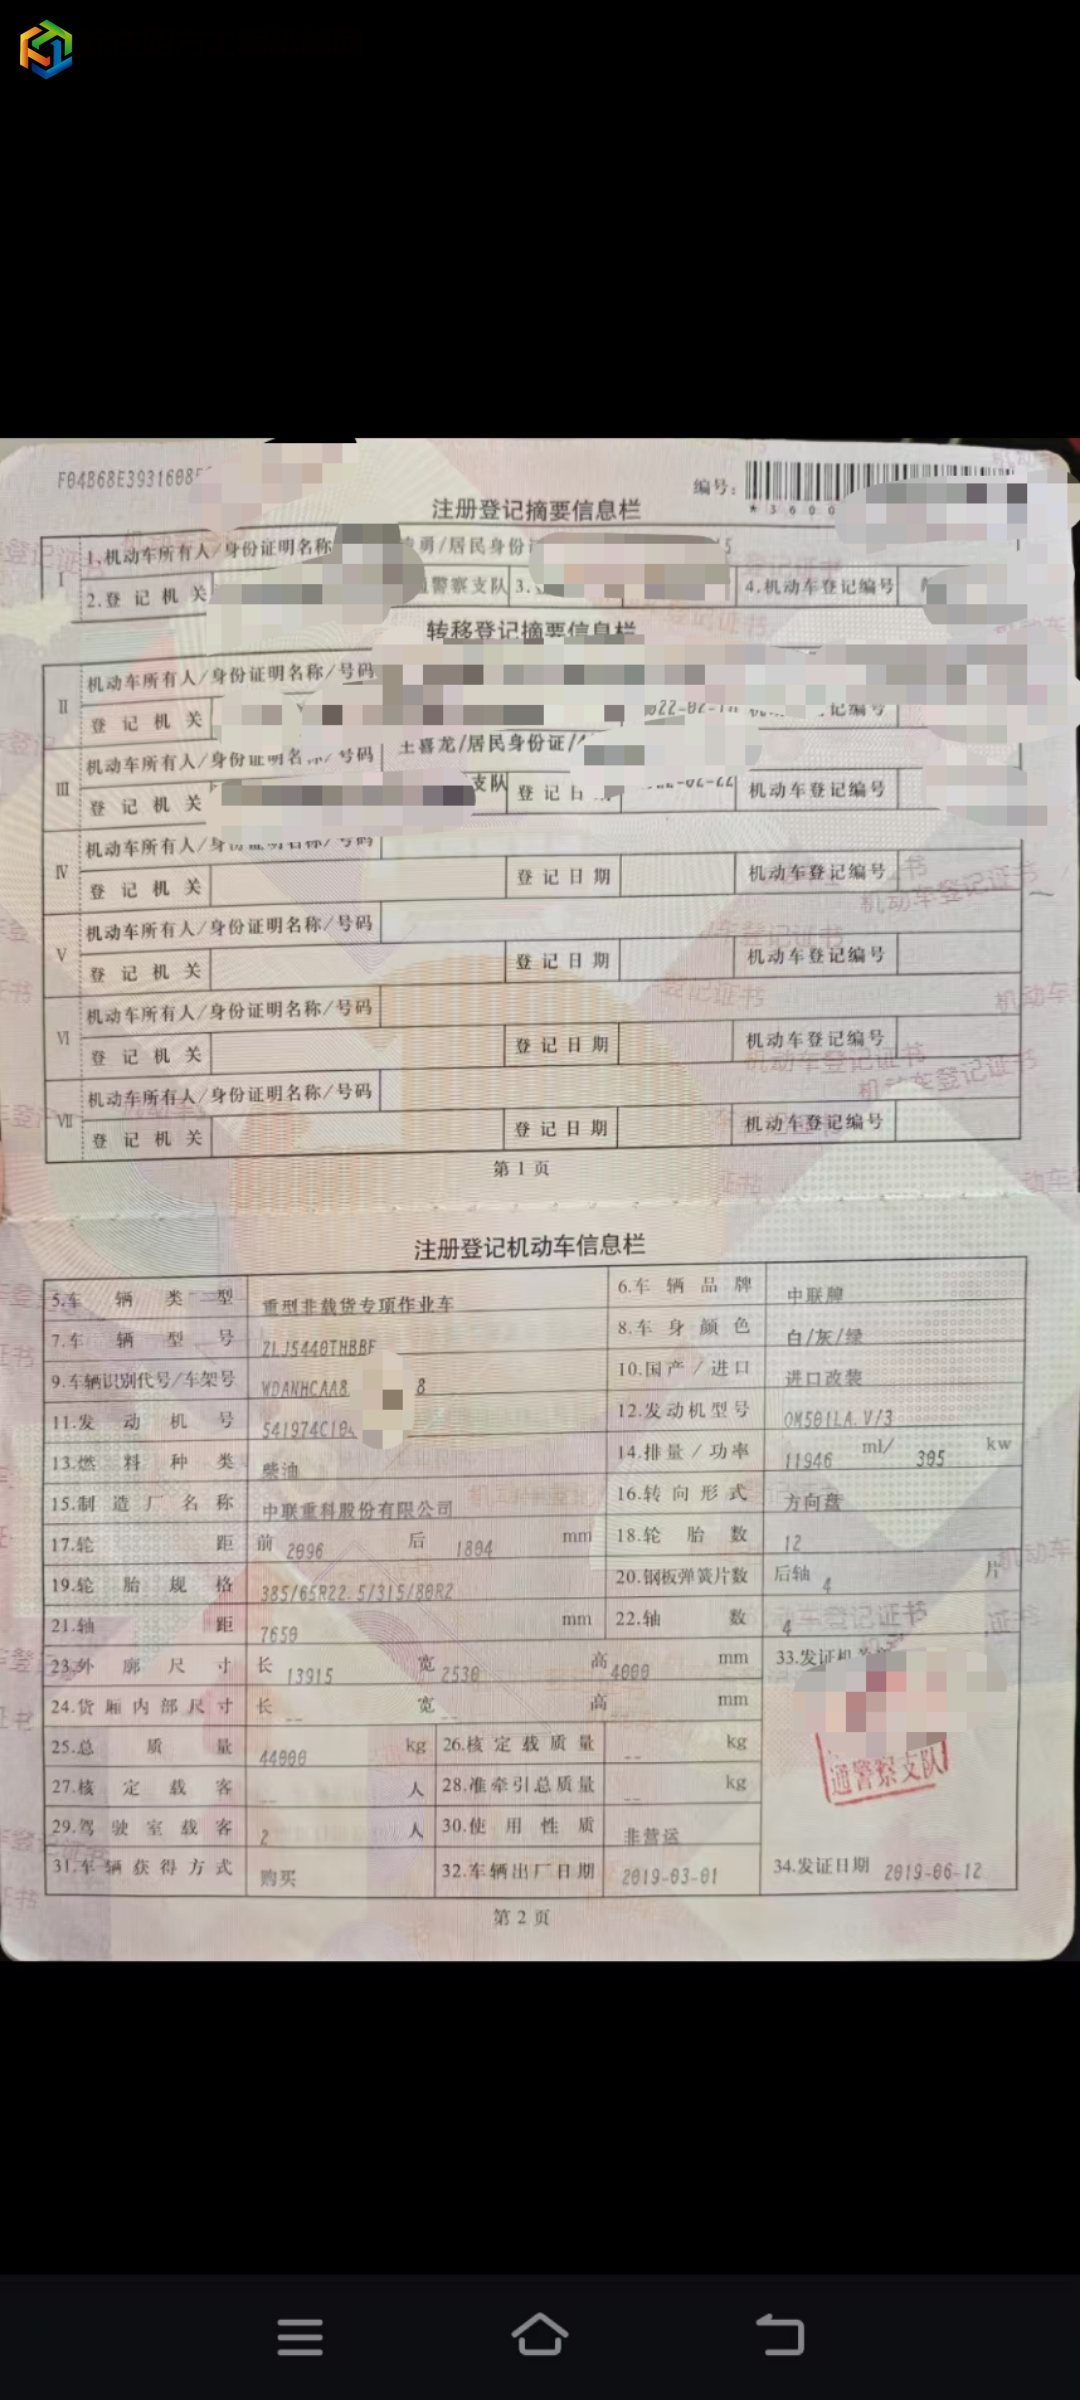 F04B68E3931608
编号:
*3600
注册登记摘要信息栏
I
1.机动车所有人/身份证明名称
勇/居民身份证
5
2.登记机关
通警察支队
3.
4.机动车登记编号
转移登记摘要信息栏
II
机动车所有人/身份证明名称/号码
登记机关
022-02-1
记编号
III
机动车所有人/身份证明名 号码
王喜龙/居民身份证/
登记机关
支队
登记日
-02-22
机动车登记编号
IV
机动车所有人/身份证明名称/号码
登记机关
登记日期
机动车登记编号
V
机动车所有人/身份证明名称/号码
登记机关
登记日期
机动车登记编号
VI
机动车所有人/身份证明名称/号码
登记机关
登记日期
机动车登记编号
VII
机动车所有人/身份证明名称/号码
登记机关
登记日期
机动车登记编号
第1页
注册登记机动车信息栏
5.车辆类型 重型非载货专项作业车 6.车辆品牌 中联牌
7.车辆型号 ZLJ5440THBBF 8.车身颜色 白/灰/绿
9.车辆识别代号/车架号 WDANHCAA8 8 10.国产/进口 进口改装
11.发动机号 541974C10 12.发动机型号 OM501LA.V/3
13.燃料种类 柴油 14.排量/功率 11946 ml/ 305 kw
15.制造厂名称 中联重科股份有限公司 16.转向形式 方向盘
17.轮距 前 2096 后 1804 mm 18.轮胎数 12
19.轮胎规格 385/65R22.5/315/80R2 20.钢板弹簧片数 后轴 4 片
21.轴距 7650 mm 22.轴数 4
23.外廓尺寸 长 13915 宽 2530 高 4000 mm 33.发证机
24.货厢内部尺寸 长 -- 宽 -- 高 -- mm
25.总质量 44000 kg 26.核定载质量 -- kg
通警察支队
27.核定载客 -- 人 28.准牵引总质量 -- kg
29.驾驶室载客 2 人 30.使用性质 非营运
31.车辆获得方式 购买 32.车辆出厂日期 2019-03-01 34.发证日期 2019-06-12
第2页